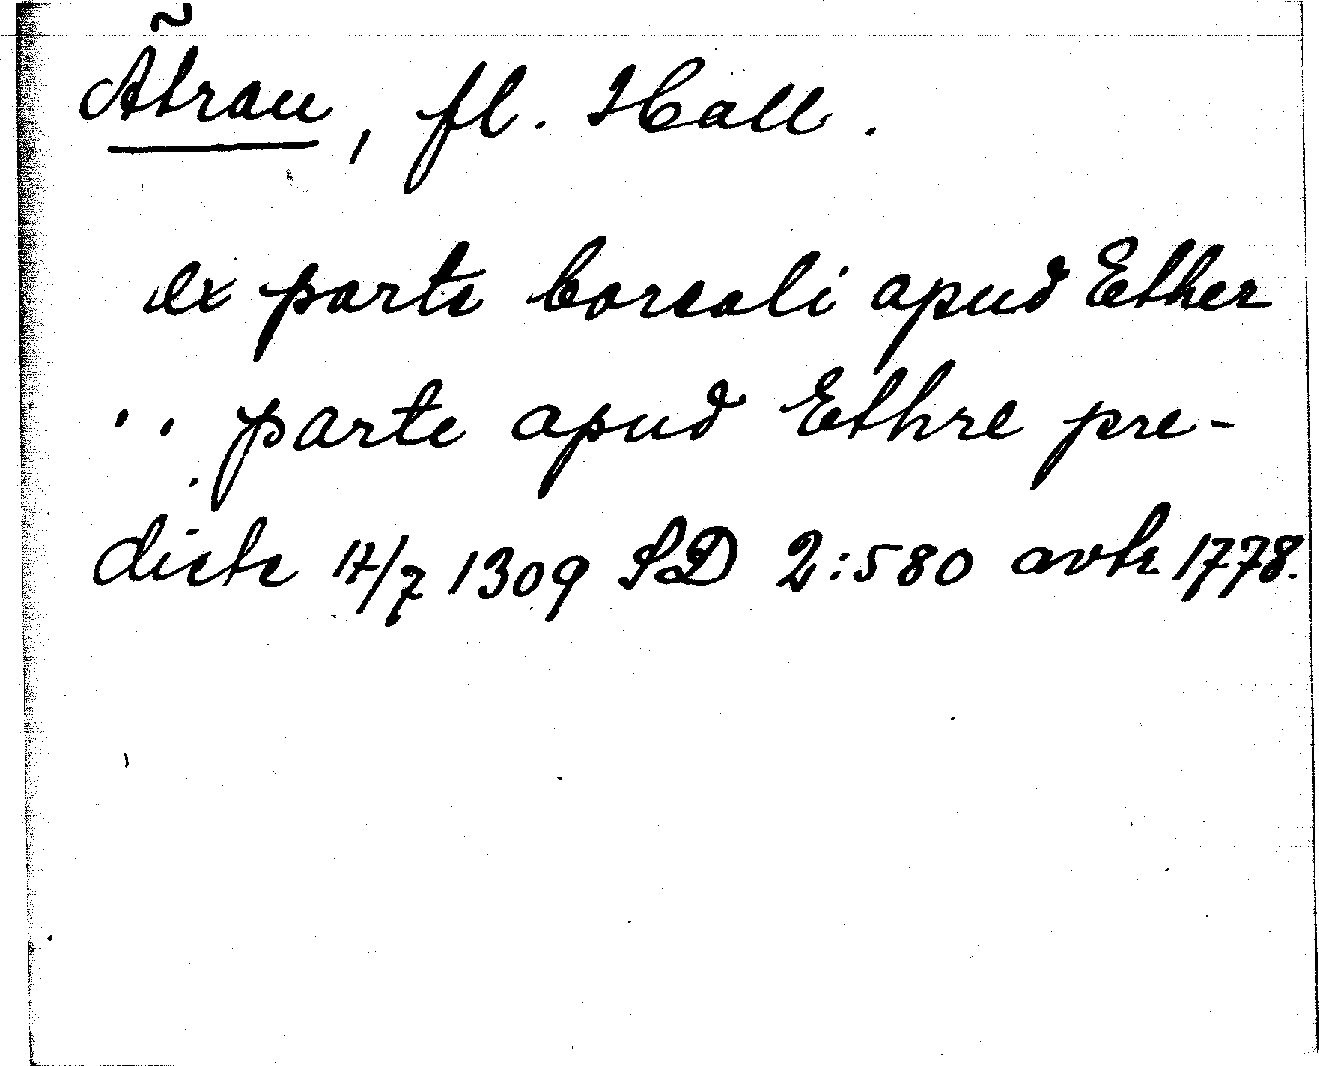 Ãtran, fl. Hall.
ex parte boreali apud Ether
.. parte apud Ethre pre-
dicte 17/7 1309 SD 2:580 avtr 1778.